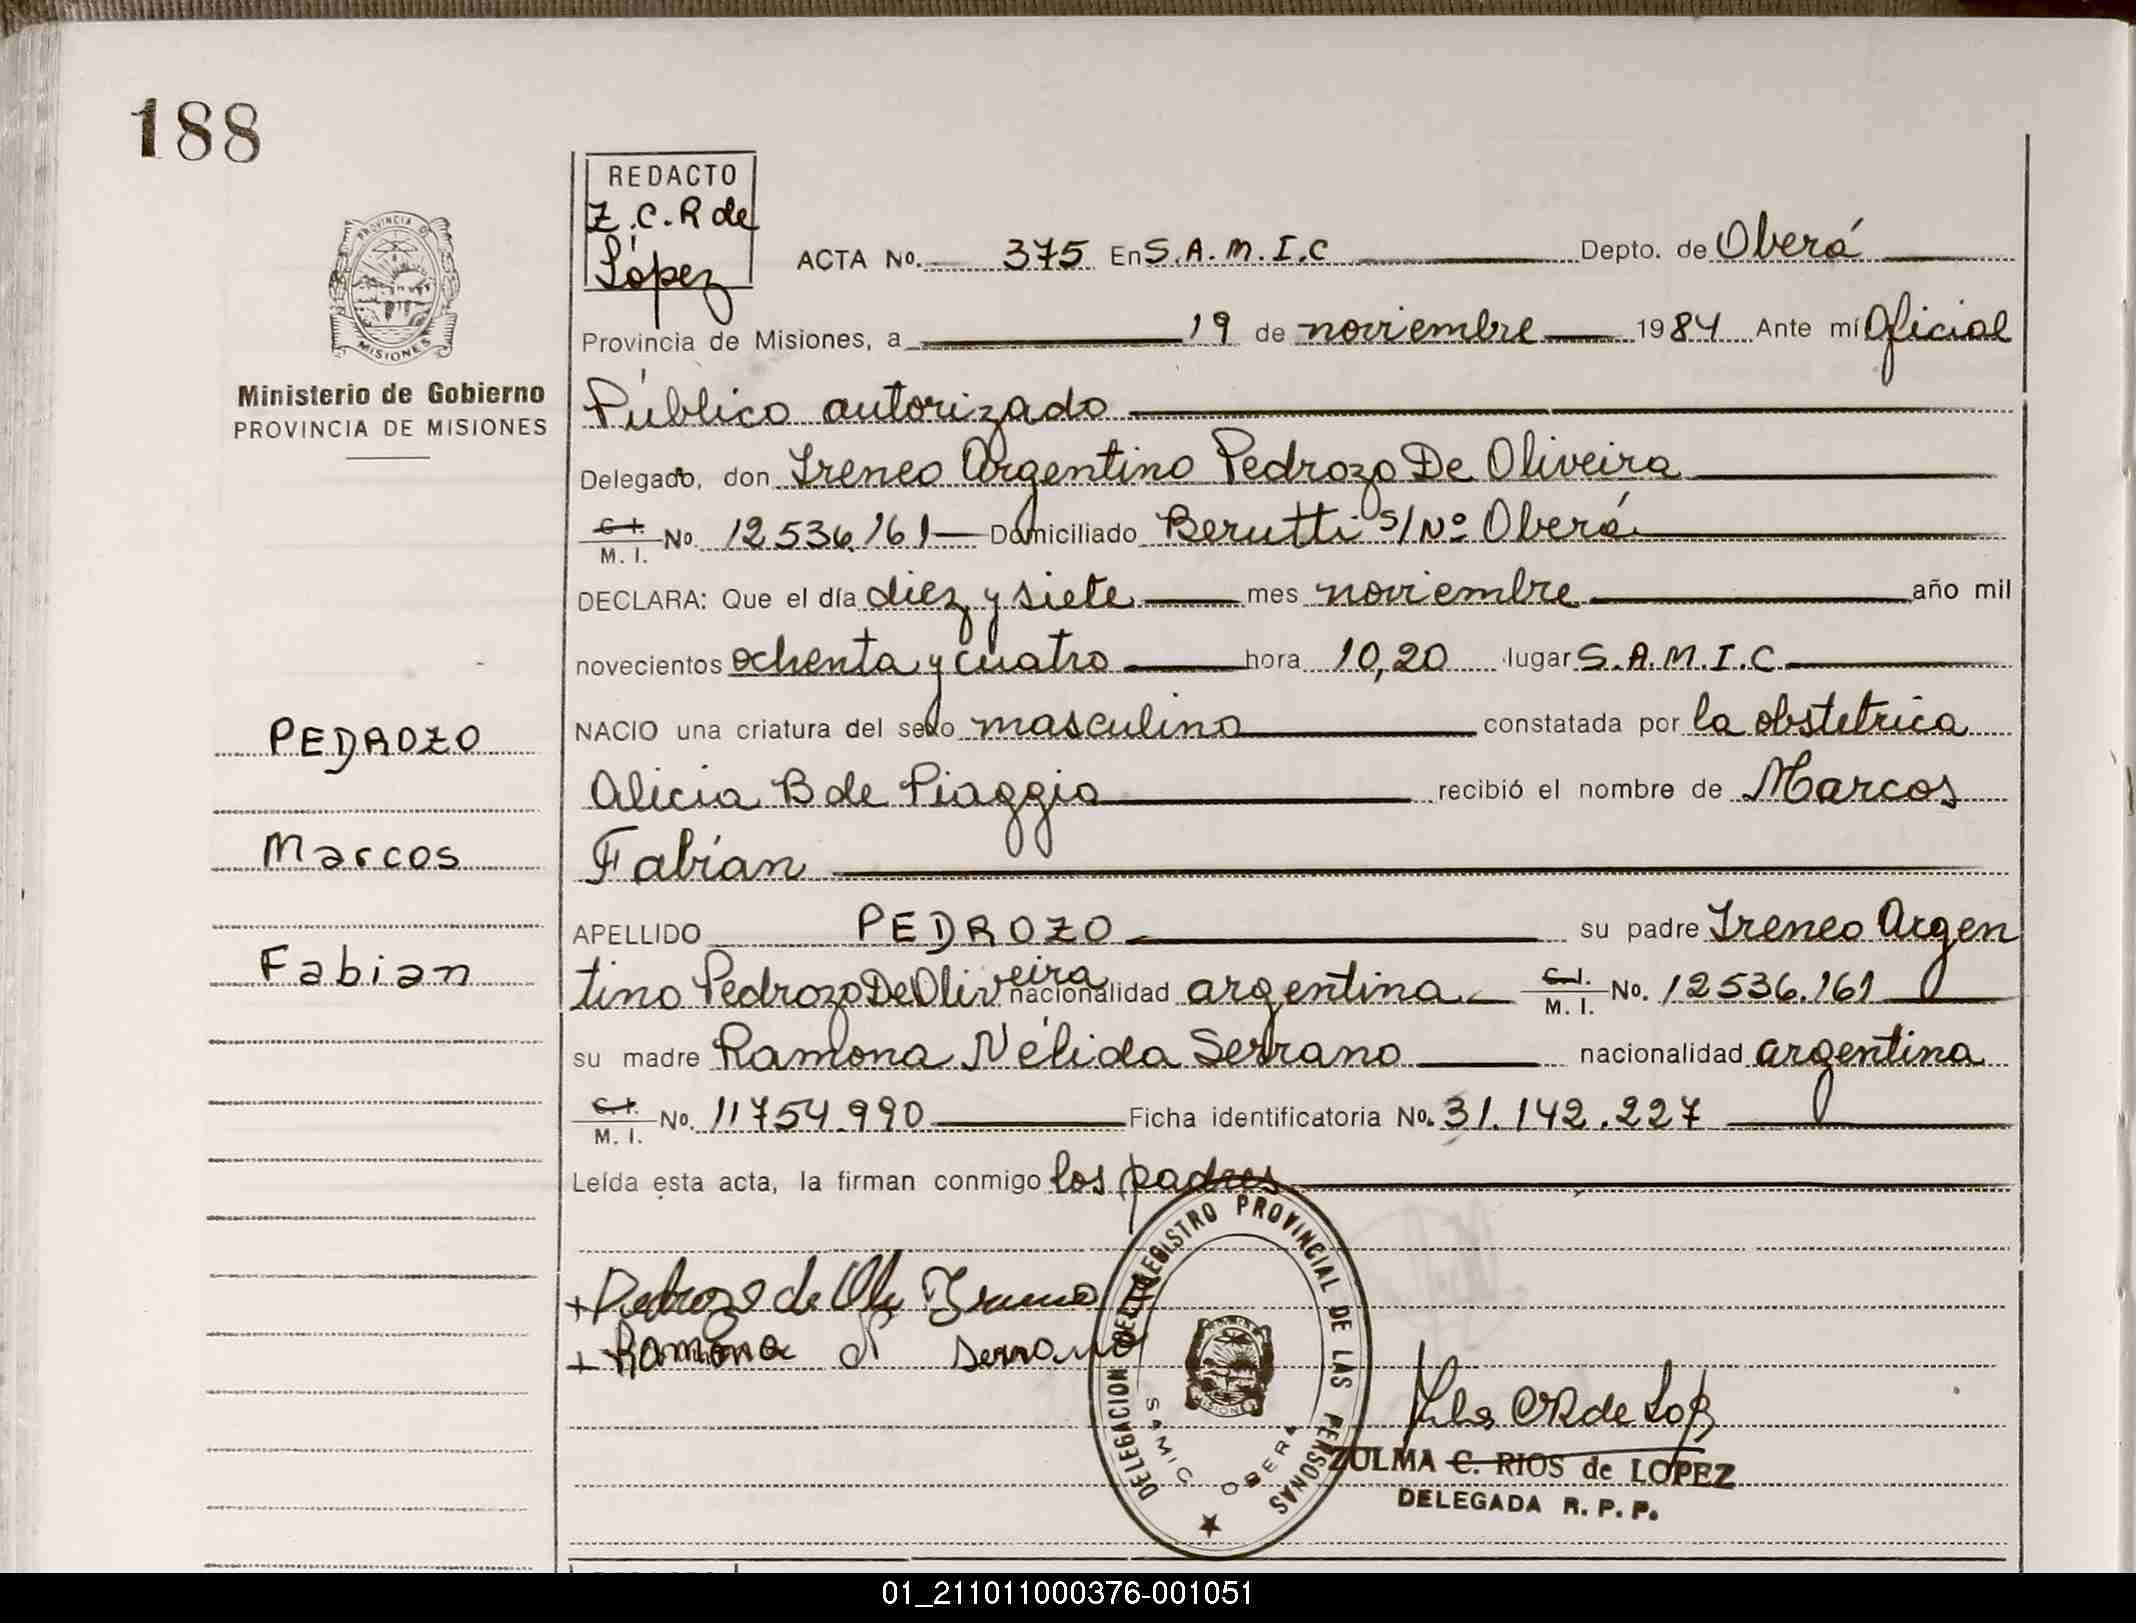 188
REDACTO
Z.C.R de
López
PROVINCIA DE
MISIONES
Ministerio de Gobierno
PROVINCIA DE MISIONES
ACTA No. 375 En S.A.M.I.C Depto. de Oberá
Provincia de Misiones, a 19 de noviembre 1984 Ante mí Oficial
Público autorizado
Delegado, don Ireneo Argentino Pedrozo De Oliveira
C.I. M.I. No. 12536.161 Domiciliado Berutti s/Nº Oberá
DECLARA: Que el día diez y siete mes noviembre año mil
novecientos ochenta y cuatro hora 10,20 lugar S.A.M.I.C
NACIO una criatura del sexo masculino constatada por la obstetrica
Alicia B de Piaggio recibió el nombre de Marcos
Fabián
APELLIDO PEDROZO su padre Ireneo Argen
tino Pedrozo De Oliveira nacionalidad argentina C.I. M.I. No. 12536.161
su madre Ramona Nélida Serrano nacionalidad argentina
C.I. M.I. No. 11754.990 Ficha identificatoria No. 31.142.227
Leída esta acta, la firman conmigo los padres
PEDROZO
Marcos
Fabian
+ Pedrozo de Oli
+ Ramona N Serrano
DELEGACION DEL REGISTRO PROVINCIAL DE LAS PERSONAS
SAMIC OBERA
MISIONES
ZULMA C. RIOS de LOPEZ
DELEGADA R. P. P.
01_211011000376-001051